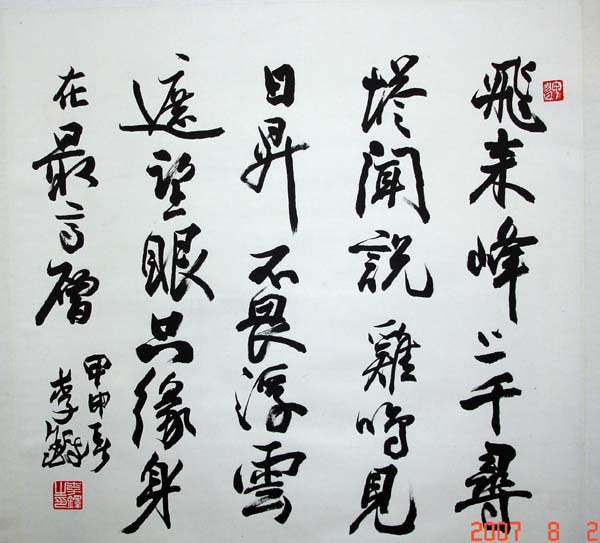 飛来峰上千尋
塔聞説雞鳴見
日昇不畏浮雲
遮望眼只緣身
在最高層
甲申春
李鐸
2007 8 2